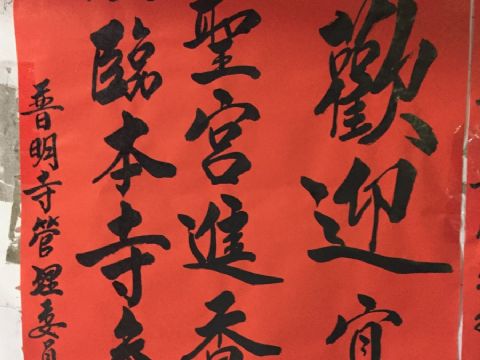 歡迎宜
聖宮進香
臨本寺參
普明寺管理委員